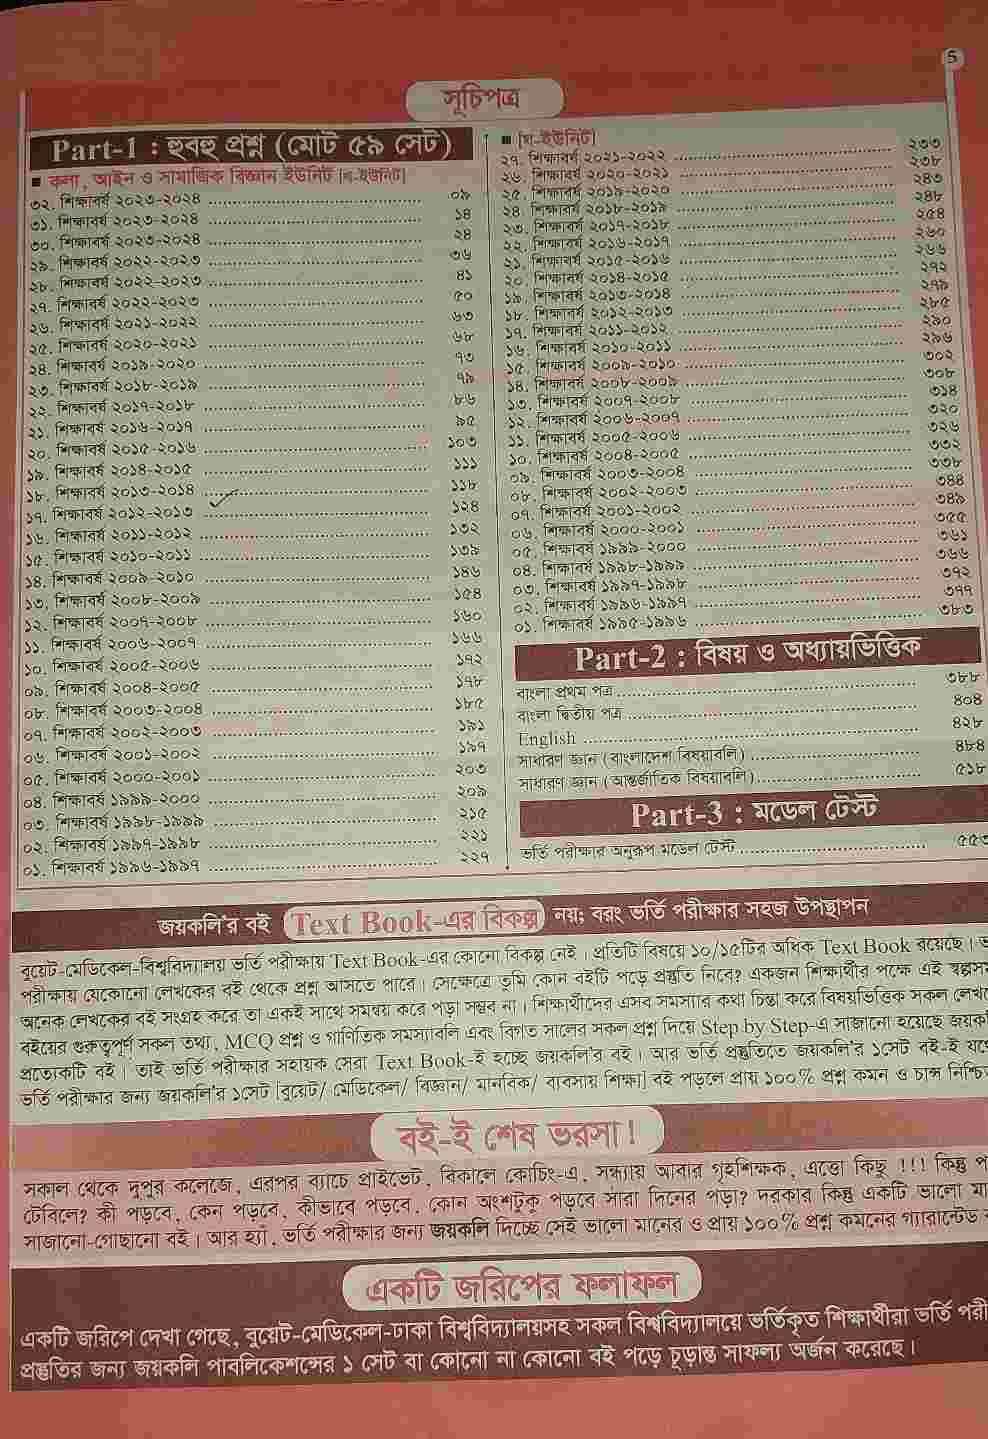 5
সূচিপত্র
Part-1 : হুবহু প্রশ্ন (মোট ৫৯ সেট)
■ কলা, আইন ও সামাজিক বিজ্ঞান ইউনিট [খ-ইউনিট]
৩২. শিক্ষাবর্ষ ২০২৩-২০২৪ ০৯
৩১. শিক্ষাবর্ষ ২০২৩-২০২৪ ১৪
৩০. শিক্ষাবর্ষ ২০২৩-২০২৪ ২৪
২৯. শিক্ষাবর্ষ ২০২২-২০২৩ ৩৬
২৮. শিক্ষাবর্ষ ২০২২-২০২৩ ৪১
২৭. শিক্ষাবর্ষ ২০২২-২০২৩ ৫০
২৬. শিক্ষাবর্ষ ২০২১-২০২২ ৬৩
২৫. শিক্ষাবর্ষ ২০২০-২০২১ ৬৮
২৪. শিক্ষাবর্ষ ২০১৯-২০২০ ৭৩
২৩. শিক্ষাবর্ষ ২০১৮-২০১৯ ৭৯
২২. শিক্ষাবর্ষ ২০১৭-২০১৮ ৮৬
২১. শিক্ষাবর্ষ ২০১৬-২০১৭ ৯৫
২০. শিক্ষাবর্ষ ২০১৫-২০১৬ ১০৩
১৯. শিক্ষাবর্ষ ২০১৪-২০১৫ ১১১
১৮. শিক্ষাবর্ষ ২০১৩-২০১৪ ১১৮
১৭. শিক্ষাবর্ষ ২০১২-২০১৩ ১২৪
১৬. শিক্ষাবর্ষ ২০১১-২০১২ ১৩২
১৫. শিক্ষাবর্ষ ২০১০-২০১১ ১৩৯
১৪. শিক্ষাবর্ষ ২০০৯-২০১০ ১৪৬
১৩. শিক্ষাবর্ষ ২০০৮-২০০৯ ১৫৪
১২. শিক্ষাবর্ষ ২০০৭-২০০৮ ১৬০
১১. শিক্ষাবর্ষ ২০০৬-২০০৭ ১৬৬
১০. শিক্ষাবর্ষ ২০০৫-২০০৬ ১৭২
০৯. শিক্ষাবর্ষ ২০০৪-২০০৫ ১৭৮
০৮. শিক্ষাবর্ষ ২০০৩-২০০৪ ১৮৫
০৭. শিক্ষাবর্ষ ২০০২-২০০৩ ১৯১
০৬. শিক্ষাবর্ষ ২০০১-২০০২ ১৯৭
০৫. শিক্ষাবর্ষ ২০০০-২০০১ ২০৩
০৪. শিক্ষাবর্ষ ১৯৯৯-২০০০ ২০৯
০৩. শিক্ষাবর্ষ ১৯৯৮-১৯৯৯ ২১৫
০২. শিক্ষাবর্ষ ১৯৯৭-১৯৯৮ ২২১
০১. শিক্ষাবর্ষ ১৯৯৬-১৯৯৭ ২২৭
■ [ঘ-ইউনিট]
২৭. শিক্ষাবর্ষ ২০২১-২০২২ ২৩৩
২৬. শিক্ষাবর্ষ ২০২০-২০২১ ২৩৮
২৫. শিক্ষাবর্ষ ২০১৯-২০২০ ২৪৩
২৪. শিক্ষাবর্ষ ২০১৮-২০১৯ ২৪৮
২৩. শিক্ষাবর্ষ ২০১৭-২০১৮ ২৫৪
২২. শিক্ষাবর্ষ ২০১৬-২০১৭ ২৬০
২১. শিক্ষাবর্ষ ২০১৫-২০১৬ ২৬৬
২০. শিক্ষাবর্ষ ২০১৪-২০১৫ ২৭২
১৯. শিক্ষাবর্ষ ২০১৩-২০১৪ ২৭৯
১৮. শিক্ষাবর্ষ ২০১২-২০১৩ ২৮৫
১৭. শিক্ষাবর্ষ ২০১১-২০১২ ২৯০
১৬. শিক্ষাবর্ষ ২০১০-২০১১ ২৯৬
১৫. শিক্ষাবর্ষ ২০০৯-২০১০ ৩০২
১৪. শিক্ষাবর্ষ ২০০৮-২০০৯ ৩০৮
১৩. শিক্ষাবর্ষ ২০০৭-২০০৮ ৩১৪
১২. শিক্ষাবর্ষ ২০০৬-২০০৭ ৩২০
১১. শিক্ষাবর্ষ ২০০৫-২০০৬ ৩২৬
১০. শিক্ষাবর্ষ ২০০৪-২০০৫ ৩৩২
০৯. শিক্ষাবর্ষ ২০০৩-২০০৪ ৩৩৮
০৮. শিক্ষাবর্ষ ২০০২-২০০৩ ৩৪৪
০৭. শিক্ষাবর্ষ ২০০১-২০০২ ৩৪৯
০৬. শিক্ষাবর্ষ ২০০০-২০০১ ৩৫৫
০৫. শিক্ষাবর্ষ ১৯৯৯-২০০০ ৩৬১
০৪. শিক্ষাবর্ষ ১৯৯৮-১৯৯৯ ৩৬৬
০৩. শিক্ষাবর্ষ ১৯৯৭-১৯৯৮ ৩৭২
০২. শিক্ষাবর্ষ ১৯৯৬-১৯৯৭ ৩৭৭
০১. শিক্ষাবর্ষ ১৯৯৫-১৯৯৬ ৩৮৩
Part-2 : বিষয় ও অধ্যায়ভিত্তিক
বাংলা প্রথম পত্র ৩৮৮
বাংলা দ্বিতীয় পত্র ৪০৪
English ৪২৮
সাধারণ জ্ঞান (বাংলাদেশ বিষয়াবলি) ৪৮৪
সাধারণ জ্ঞান (আন্তর্জাতিক বিষয়াবলি) ৫১৮
Part-3 : মডেল টেস্ট
ভর্তি পরীক্ষার অনুরূপ মডেল টেস্ট ৫৫৩
জয়কলি'র বই Text Book-এর বিকল্প নয়; বরং ভর্তি পরীক্ষার সহজ উপস্থাপন
বুয়েট-মেডিকেল-বিশ্ববিদ্যালয় ভর্তি পরীক্ষায় Text Book-এর কোনো বিকল্প নেই। প্রতিটি বিষয়ে ১০/১৫টির অধিক Text Book রয়েছে।
পরীক্ষায় যেকোনো লেখকের বই থেকে প্রশ্ন আসতে পারে। সেক্ষেত্রে তুমি কোন বইটি পড়ে প্রস্তুতি নিবে? একজন শিক্ষার্থীর পক্ষে এই স্বল্পসম
অনেক লেখকের বই সংগ্রহ করে তা একই সাথে সমন্বয় করে পড়া সম্ভব না। শিক্ষার্থীদের এসব সমস্যার কথা চিন্তা করে বিষয়ভিত্তিক সকল লেখ
বইয়ের গুরুত্বপূর্ণ সকল তথ্য, MCQ প্রশ্ন ও গাণিতিক সমস্যাবলি এবং বিগত সালের সকল প্রশ্ন দিয়ে Step by Step-এ সাজানো হয়েছে জয়ক
প্রত্যেকটি বই। তাই ভর্তি পরীক্ষার সহায়ক সেরা Text Book-ই হচ্ছে জয়কলি'র বই। আর ভর্তি প্রস্তুতিতে জয়কলি'র ১সেট বই-ই যথে
ভর্তি পরীক্ষার জন্য জয়কলি'র ১সেট [বুয়েট/ মেডিকেল/ বিজ্ঞান/ মানবিক/ ব্যবসায় শিক্ষা] বই পড়লে প্রায় ১০০% প্রশ্ন কমন ও চান্স নিশ্চিত
বই-ই শেষ ভরসা!
সকাল থেকে দুপুর কলেজে, এরপর ব্যাচে প্রাইভেট, বিকালে কোচিং-এ, সন্ধ্যায় আবার গৃহশিক্ষক, এত্তো কিছু !!! কিন্তু প
টেবিলে? কী পড়বে, কেন পড়বে, কীভাবে পড়বে, কোন অংশটুকু পড়বে সারা দিনের পড়া? দরকার কিন্তু একটি ভালো মা
সাজানো-গোছানো বই। আর হ্যাঁ, ভর্তি পরীক্ষার জন্য জয়কলি দিচ্ছে সেই ভালো মানের ও প্রায় ১০০% প্রশ্ন কমনের গ্যারান্টেড
একটি জরিপের ফলাফল
একটি জরিপে দেখা গেছে, বুয়েট-মেডিকেল-ঢাকা বিশ্ববিদ্যালয়সহ সকল বিশ্ববিদ্যালয়ে ভর্তিকৃত শিক্ষার্থীরা ভর্তি পরী
প্রস্তুতির জন্য জয়কলি পাবলিকেশন্সের ১ সেট বা কোনো না কোনো বই পড়ে চূড়ান্ত সাফল্য অর্জন করেছে।